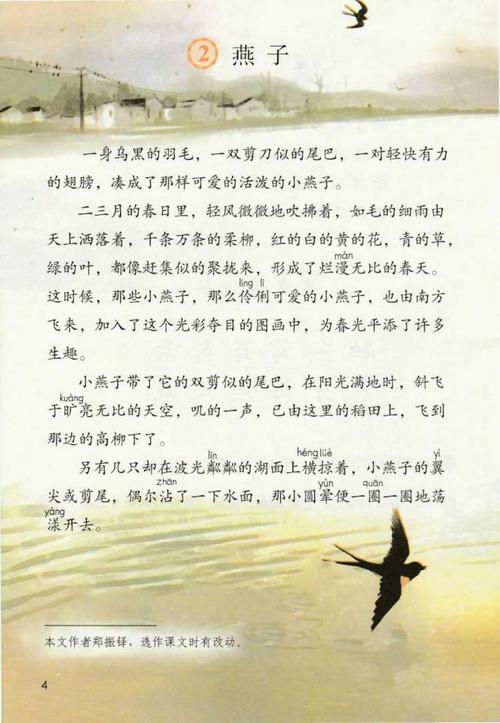 2 燕子
一身乌黑的羽毛，一双剪刀似的尾巴，一对轻快有力
的翅膀，凑成了那样可爱的活泼的小燕子。
二三月的春日里，轻风微微地吹拂着，如毛的细雨由
天上洒落着，千条万条的柔柳，红的白的黄的花，青的草，
绿的叶，都像赶集似的聚拢来，形成了烂漫无比的春天。
màn
这时候，那些小燕子，那么伶俐可爱的小燕子，也由南方
líng lì
飞来，加入了这个光彩夺目的图画中，为春光平添了许多
生趣。
小燕子带了它的双剪似的尾巴，在阳光满地时，斜飞
于旷亮无比的天空，叽的一声，已由这里的稻田上，飞到
kuàng
那边的高柳下了。
另有几只却在波光粼粼的湖面上横掠着，小燕子的翼
lín héng lüè yì
尖或剪尾，偶尔沾了一下水面，那小圆晕便一圈一圈地荡
zhān yùn quān
漾开去。
yàng
本文作者郑振铎，选作课文时有改动。
4